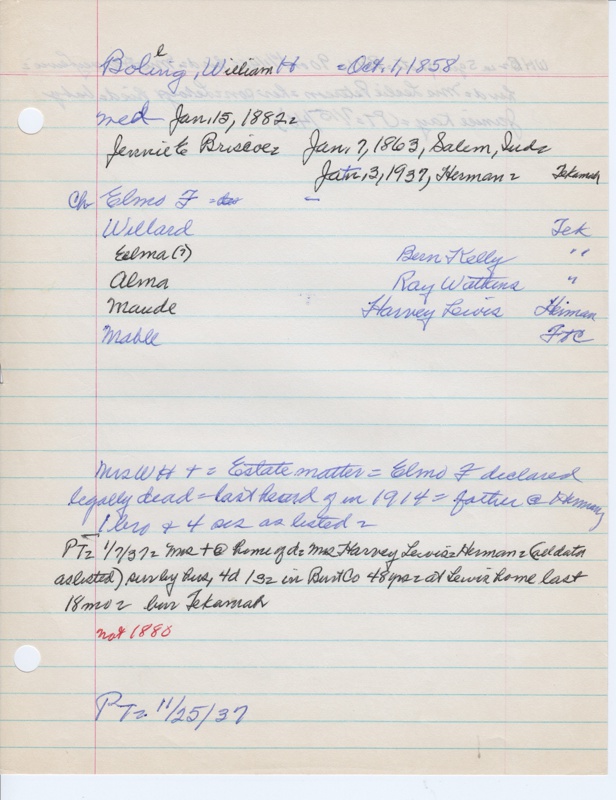 Boling, William H = Oct. 1, 1858
e
med Jan. 15, 1882 =
Jennie E Briscoe = Jan. 7, 1863, Salem, Ind =
Jan. 3, 1937, Herman = Tekamah
Ch Elmo F = –
Willard Tek
Eelma (?) Bern Kelly "
Alma Ray Watkins "
Maude Harvey Lewis Herman
Mable
Mrs W H + = Estate matter = Elmo F declared
legally dead = last heard of in 1914 = father @ Herman,
1 bro + 4 sis as listed =
PT = 1/7/37 = Mrs + @ home of d = Mrs Harvey Lewis = Herman = (all data
as listed) sur by hus, 4d 1s = in Burt Co 48 yrs = at Lewis home last
18 mo = bur Tekamah
not 1880
PT = 11/25/37